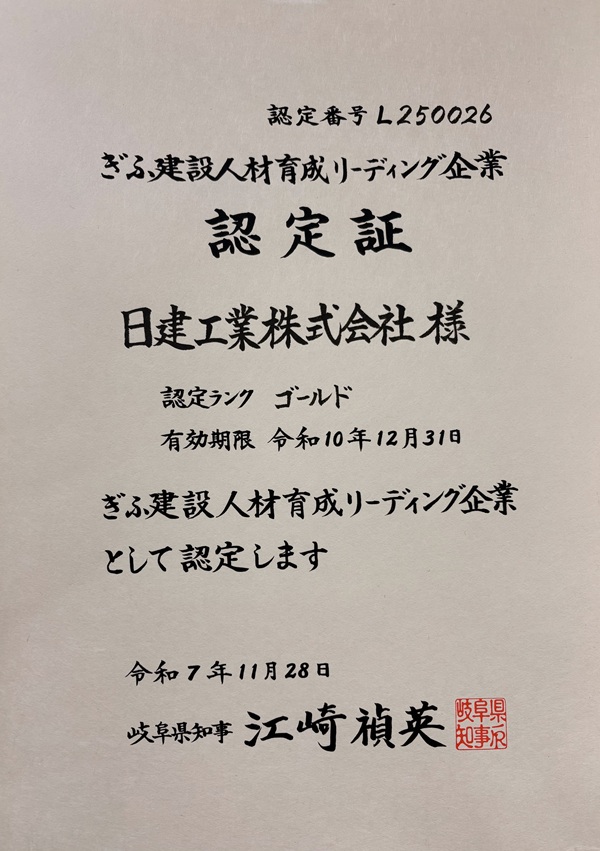 認定番号 L250026
ぎふ建設人材育成リーディング企業
認定証
日建工業株式会社 様
認定ランク ゴールド
有効期限 令和10年12月31日
ぎふ建設人材育成リーディング企業
として認定します
令和7年11月28日
岐阜県知事 江崎禎英
岐阜県知事印